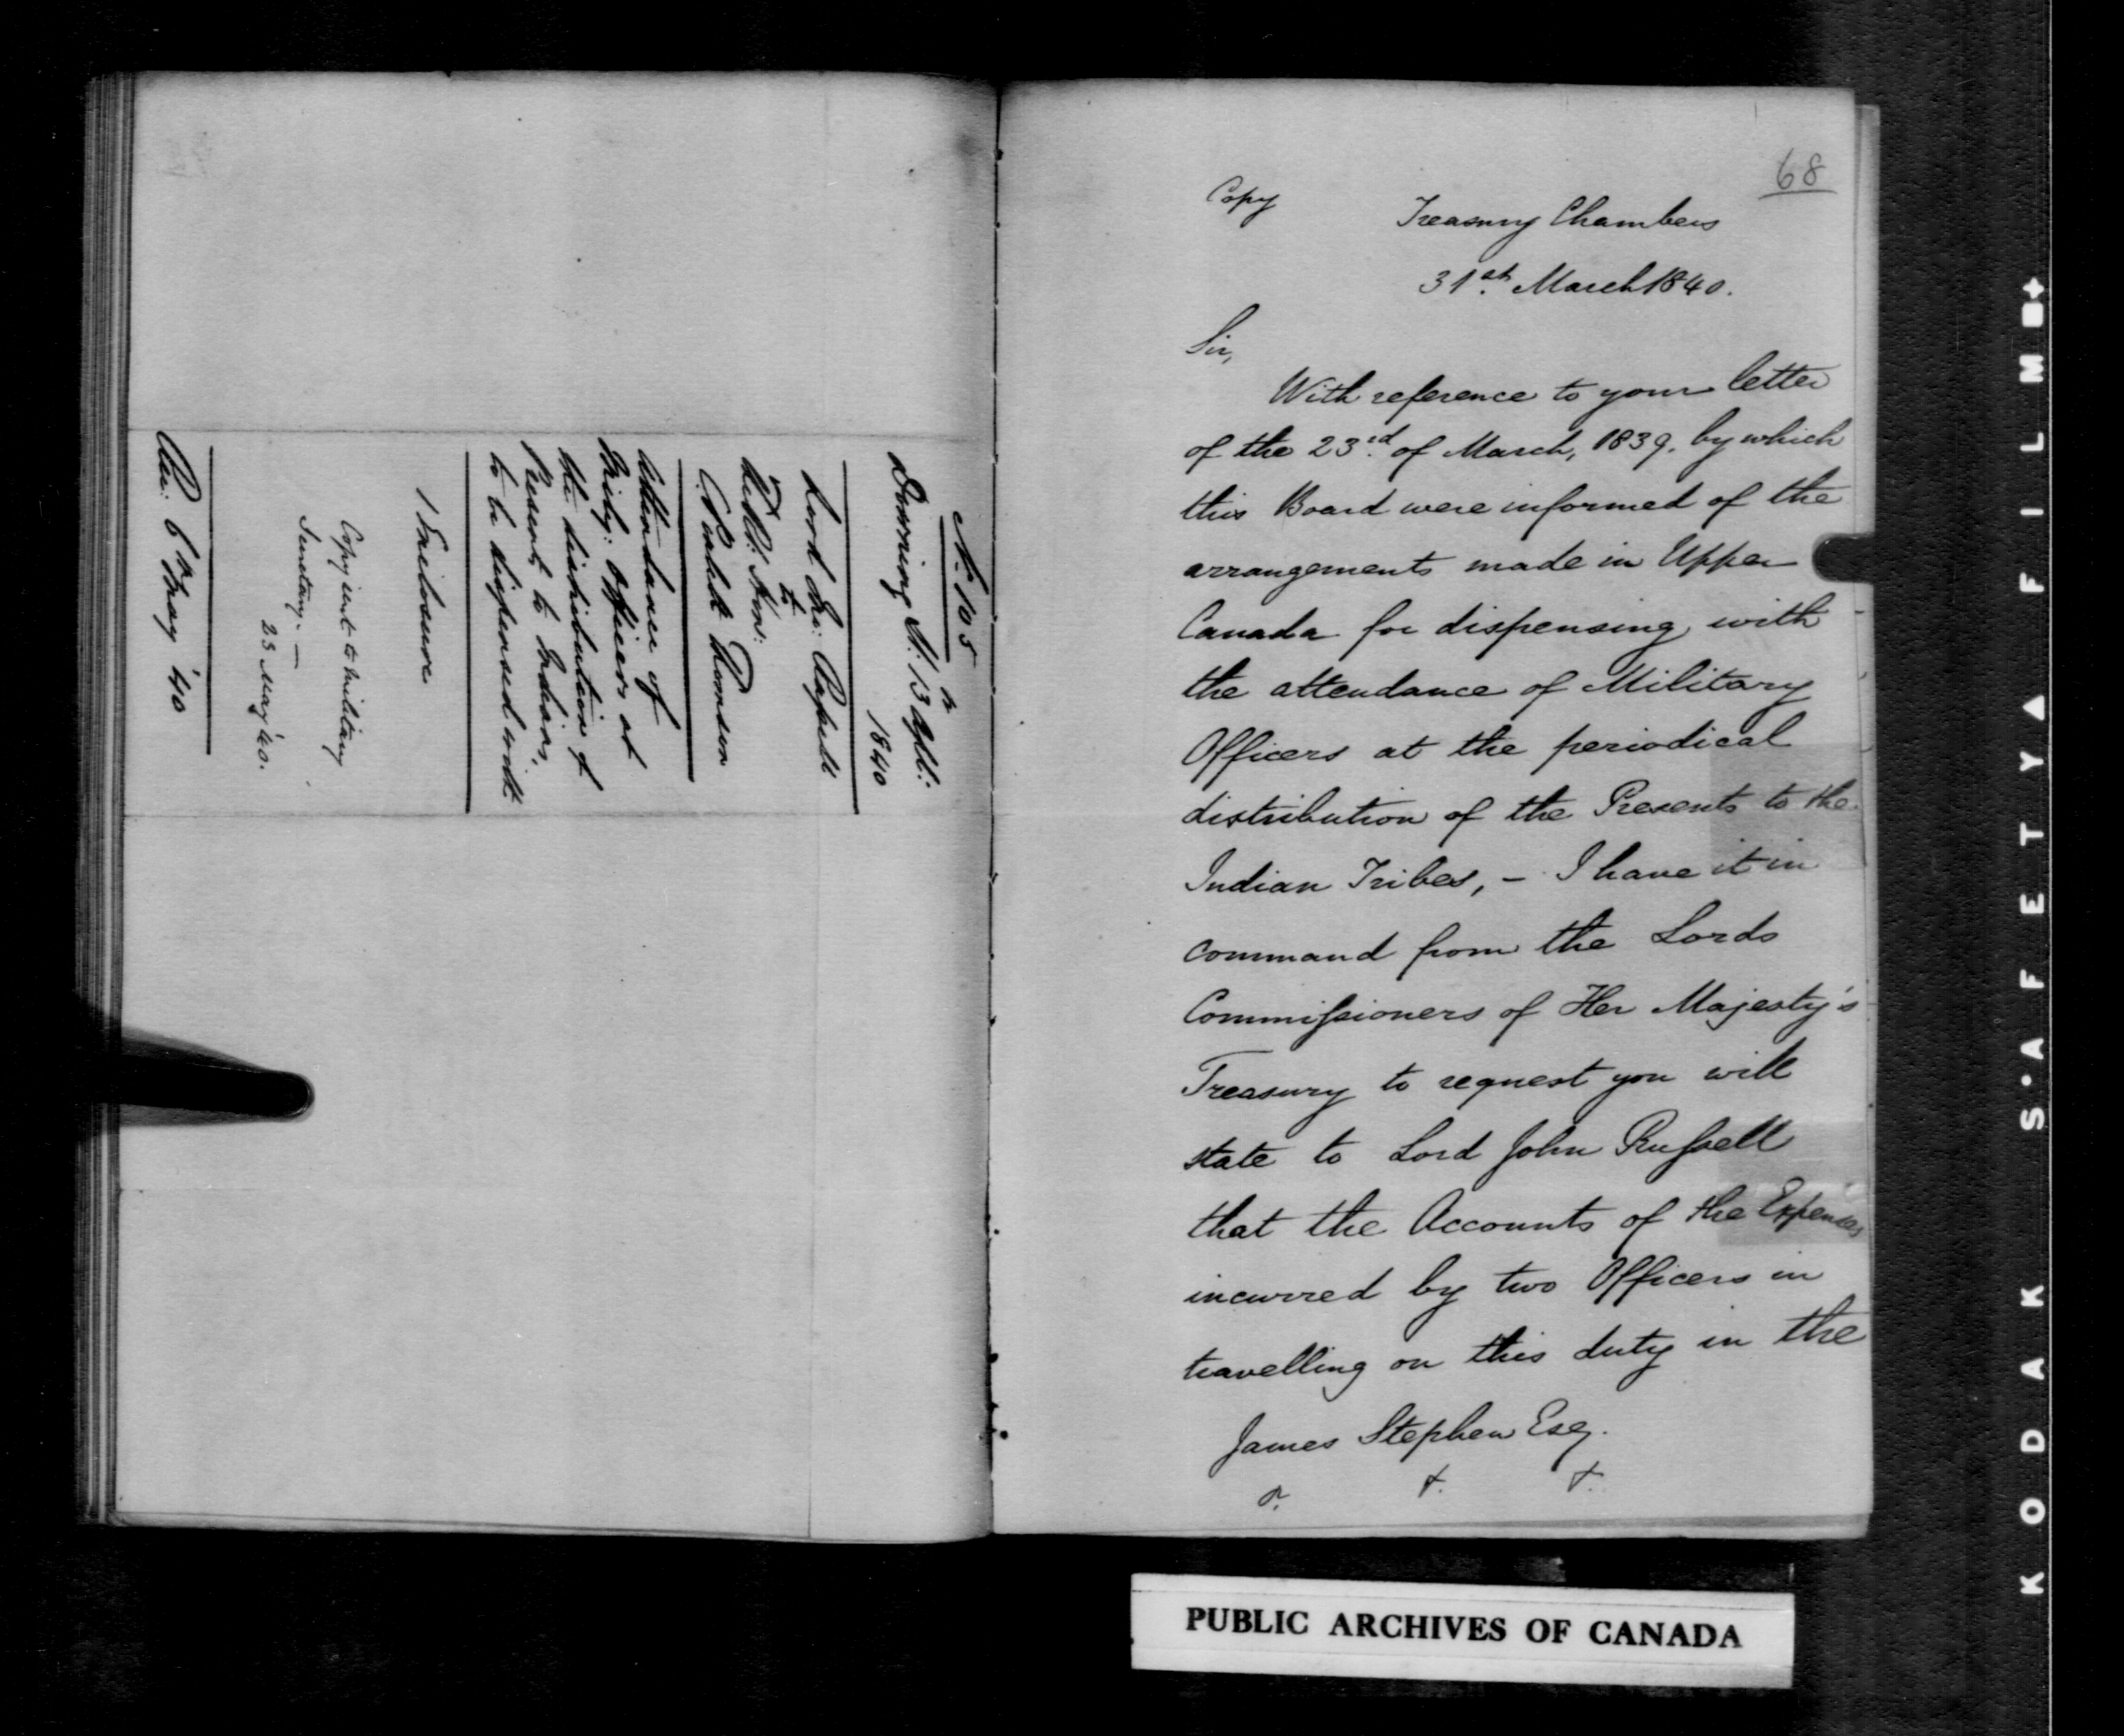 No. 105
Downing St. 13th Apl:
1840
Lord Jn: Russell
to
Rt. Hon:
C. Poulett Thomson
Attendance of
Mility: Officers at
the distribution of
Presents to Indians,
to be dispensed with
1 Enclosure
Copy sent to Military
Secretary. —
23 May '40.
6th May '40
68
Copy
Treasury Chambers
31st. March 1840.
Sir,
With reference to your letter
of the 23rd. of March, 1839. by which
this Board were informed of the
arrangements made in Upper
Canada for dispensing with
the attendance of Military
Officers at the periodical
distribution of the Presents to the
Indian Tribes, – I have it in
command from the Lords
Commissioners of Her Majesty's
Treasury to request you will
state to Lord John Russell
that the Accounts of the Expenses
incurred by two Officers in
travelling on this duty in the
James Stephen Esq.
PUBLIC ARCHIVES OF CANADA
KODAK S·AFETYA FILM